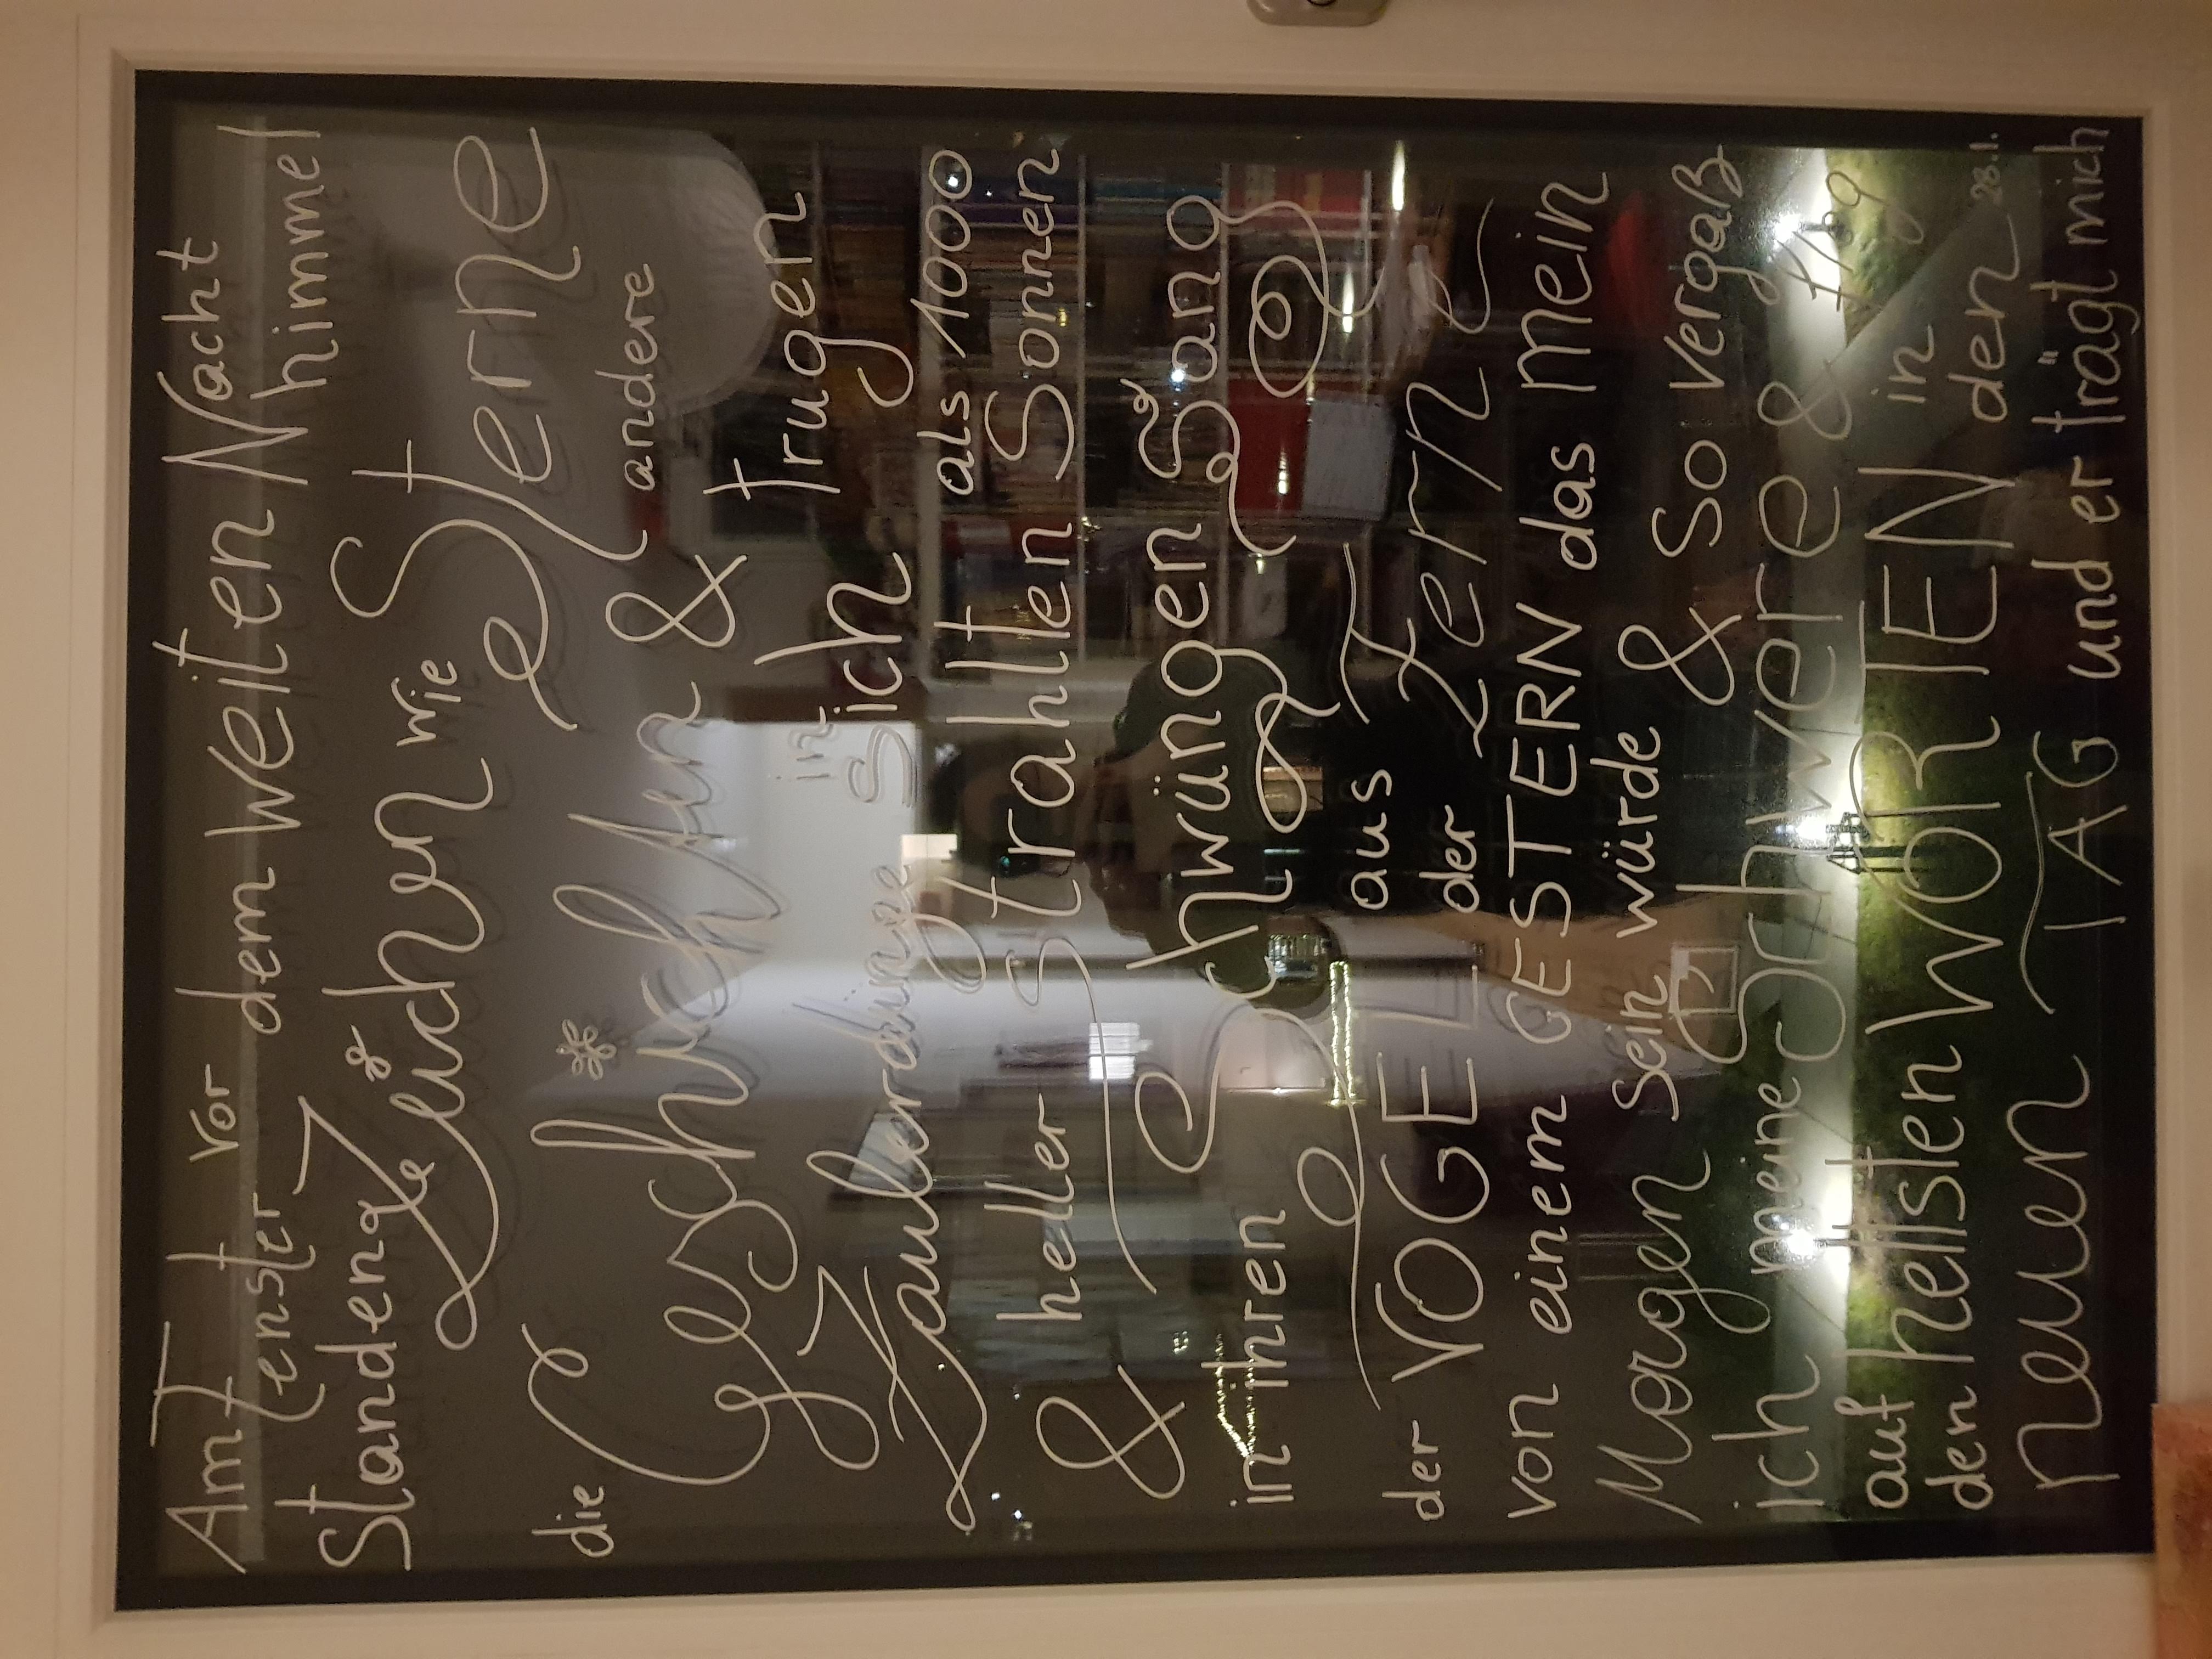 Am Fenster vor dem weiten Nacht
himmel
Standen Zeichen wie Sterne
die Geschichten & andere
Zauberdinge in sich trugen
& heller strahlten als 1000 Sonnen
in ihren Schwüngen sang
der VOGEL aus der Fern
von einem GESTERN das mein
Morgen sein würde & so vergaß
ich meine Schwere & flog
auf den hellsten WORTEN in den
28.1.
neuen TAG und er trägt mich